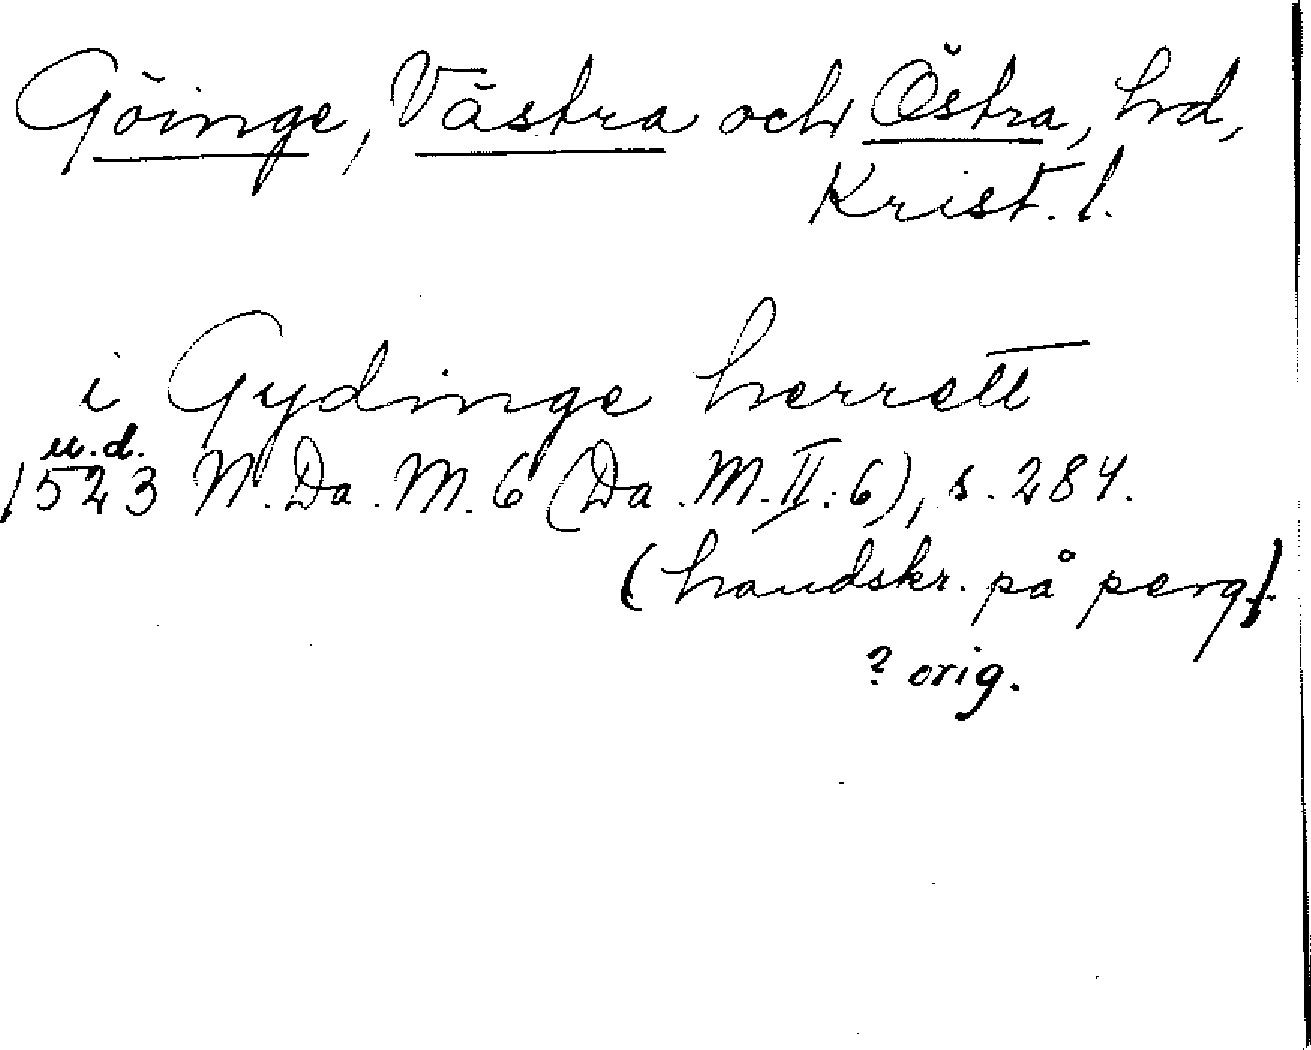 Göinge, Västra och Östra, hd,
Krist. l.
i Gydinge herrett
u.d.
1523 N. Da. M. 6 (Da. M. II: 6), s. 284.
(handskr. på perg.)
? orig.